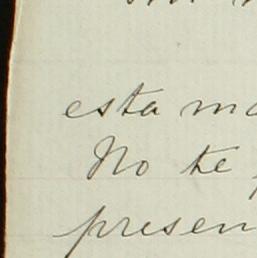 esta ma
No te
presen